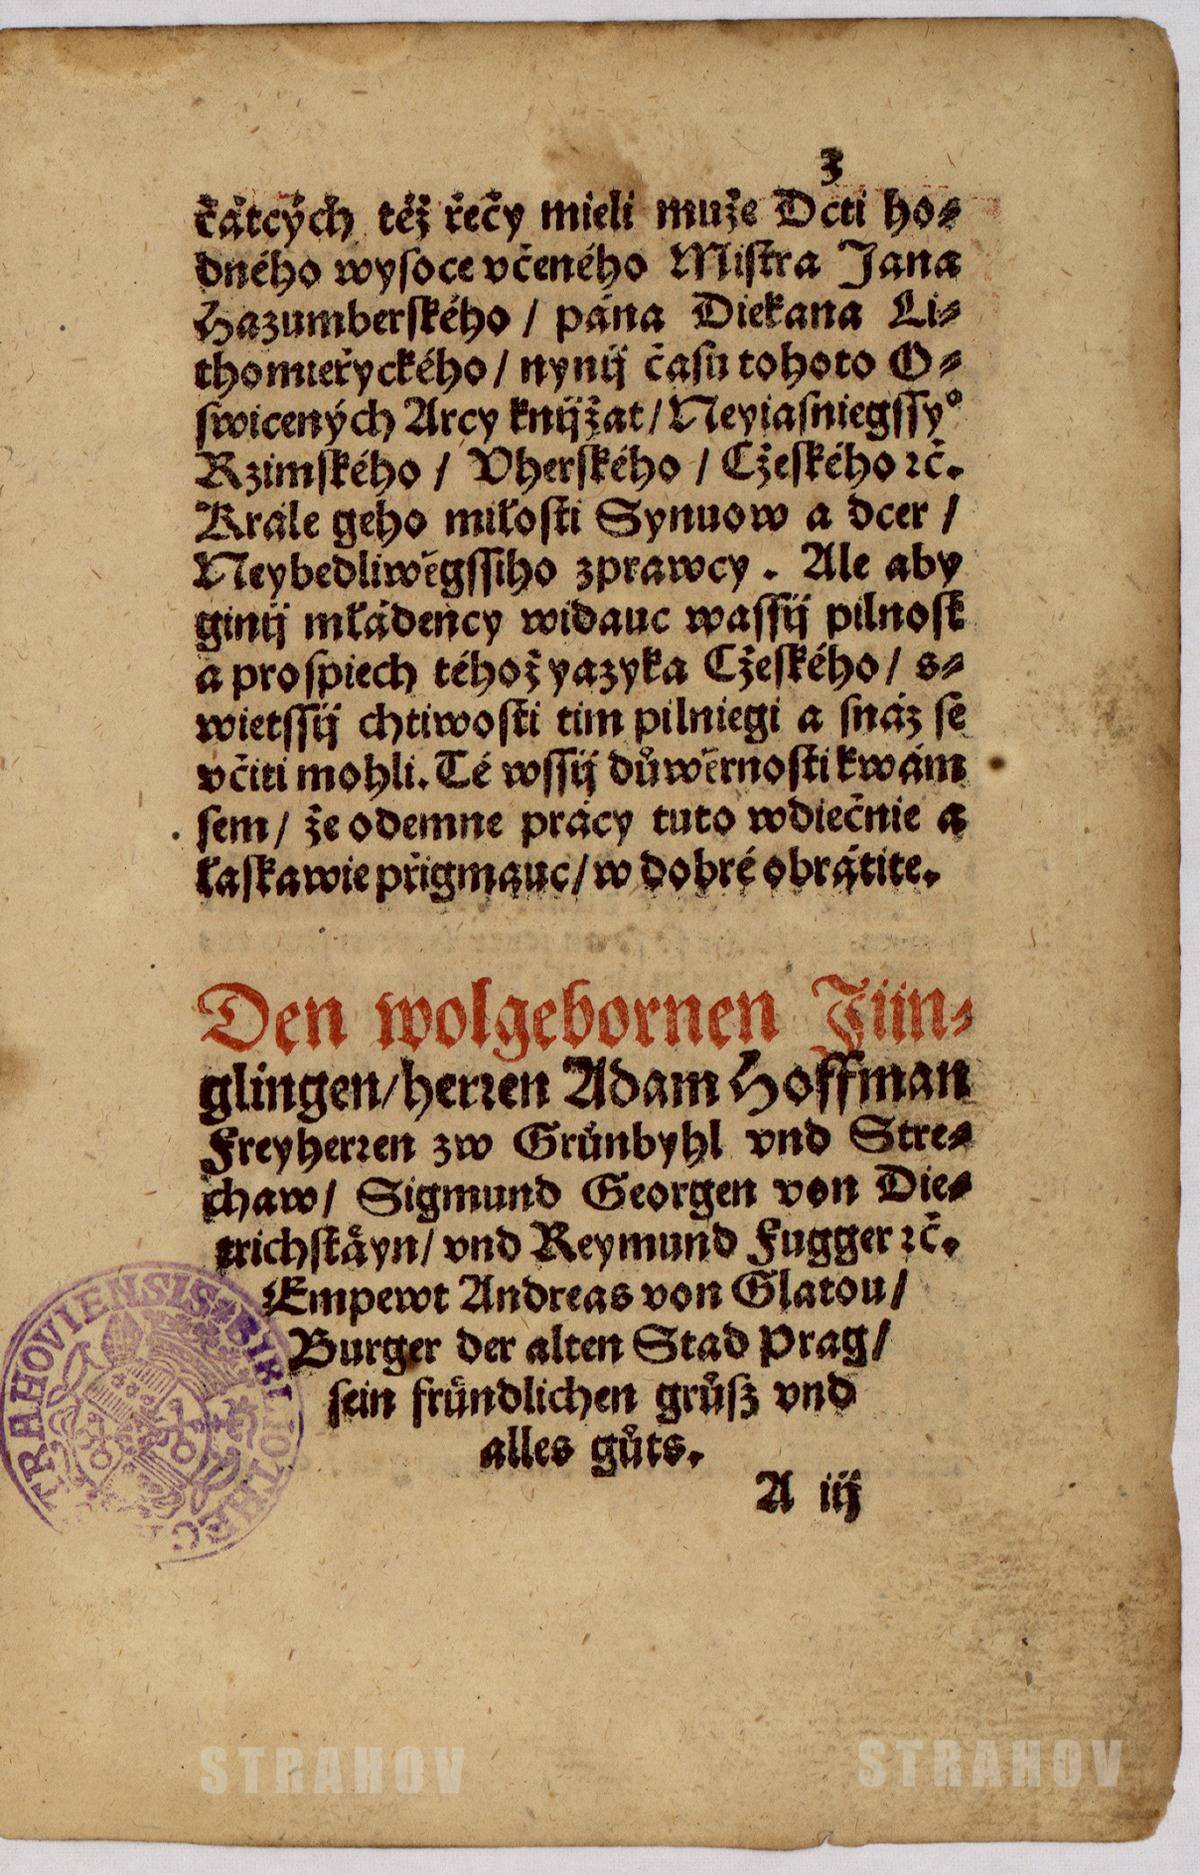 3
krátcých též řečy mieli muže Dcti ho⸗
dného wysoce včeného Mistra Jana
Hazumberského / pána Diekana Li⸗
thomieřyckého / nynij času tohoto O⸗
swicených Arcy knijžat / Neyiasniegssy°
Rzimského / Vherského / Cžeského ꝛč.
Krále geho milosti Synuow a dcer /
Neybedliwěgssiho zprawcy . Ale aby
ginij mládency widauc wassij pilnost
a prospiech téhož yazyka Cžeského / s⸗
wietssij chtiwosti tim pilniegi a snáz se
včiti mohli. Té wssij důwěrnosti k wám
sem / že odemne prácy tuto wdiečnie a
laskawie přigmauc / w dobré obrátite.
Den wolgebornen Jün⸗
glingen / herꝛen Adam Hoffman
Freyherꝛen zw Grůnbyhl vnd Stre⸗
chaw / Sigmund Georgen von Die⸗
trichståyn / vnd Reymund Fugger ꝛč.
Empewt Andreas von Glatou /
Burger der alten Stad Prag /
sein fründlichen grůsz vnd
alles gůts.
A iij
STRAHOVIENSIS * BIBLIOTHEC
STRAHOV STRAHOV